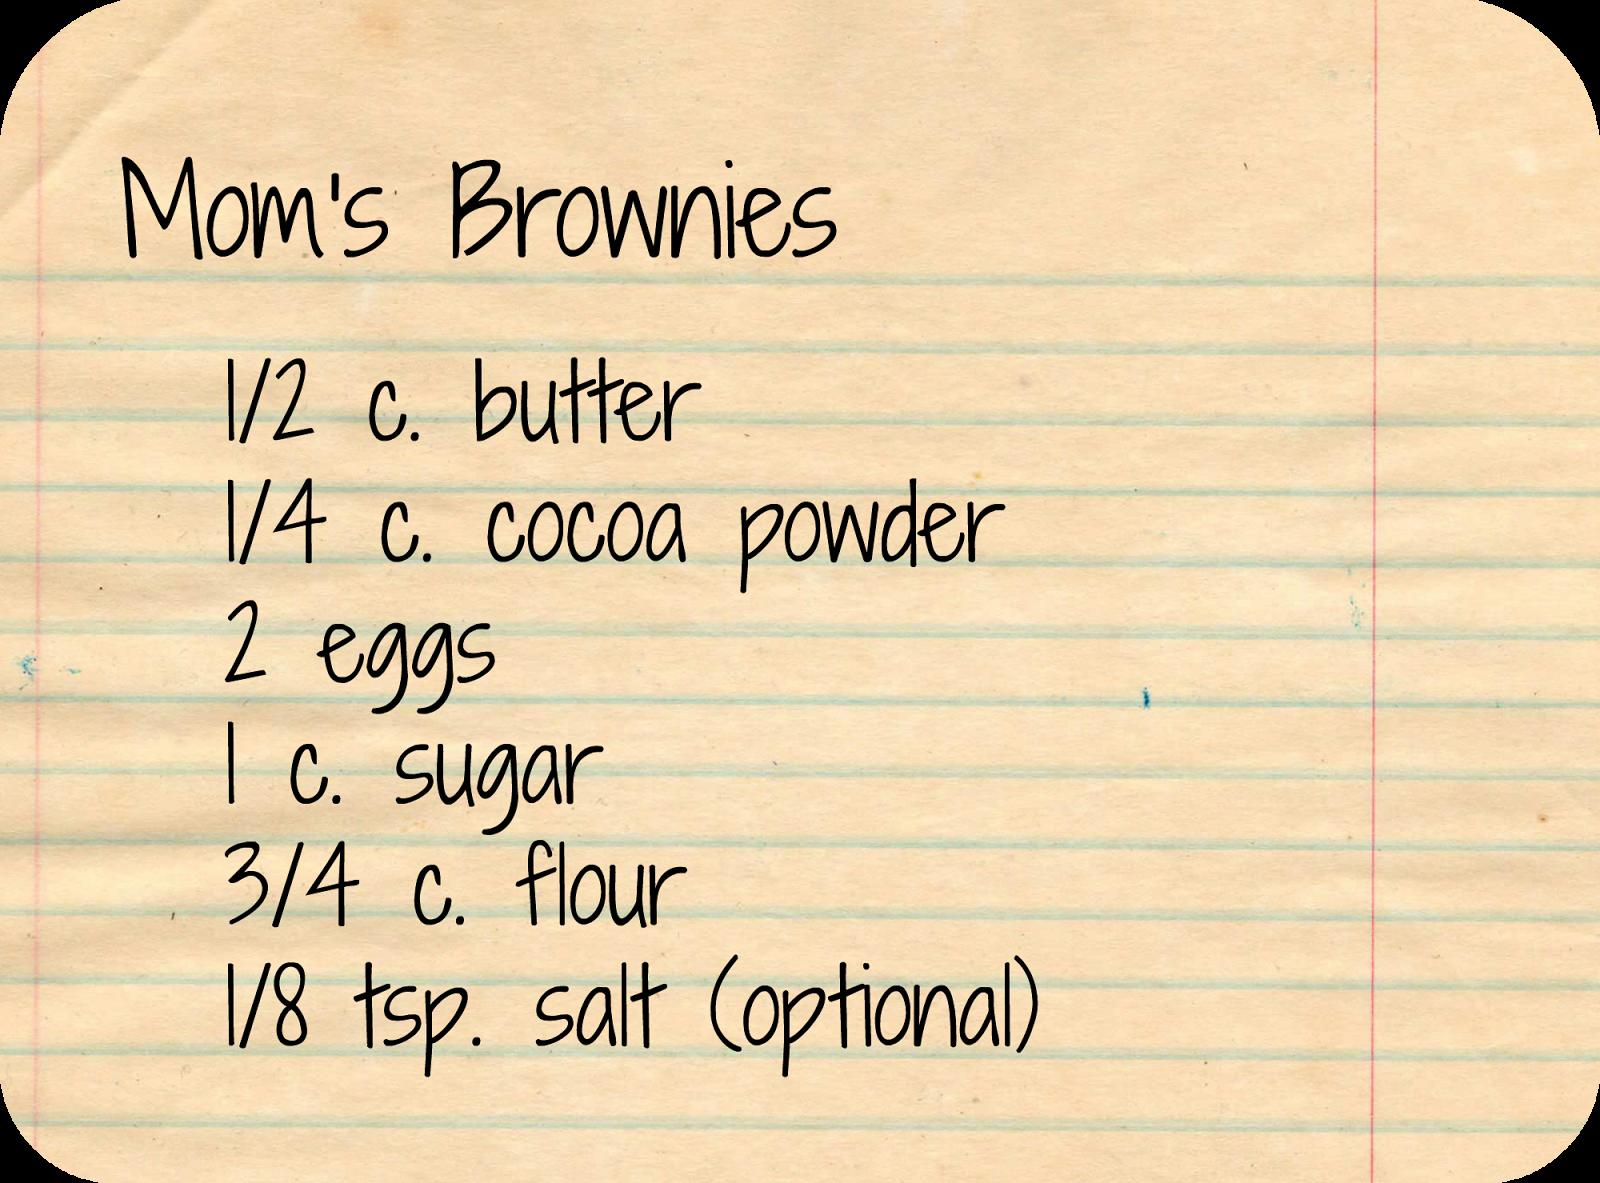 Mom's Brownies
1/2 c. butter
1/4 c. cocoa powder
2 eggs
1 c. sugar
3/4 c. flour
1/8 tsp. salt (optional)